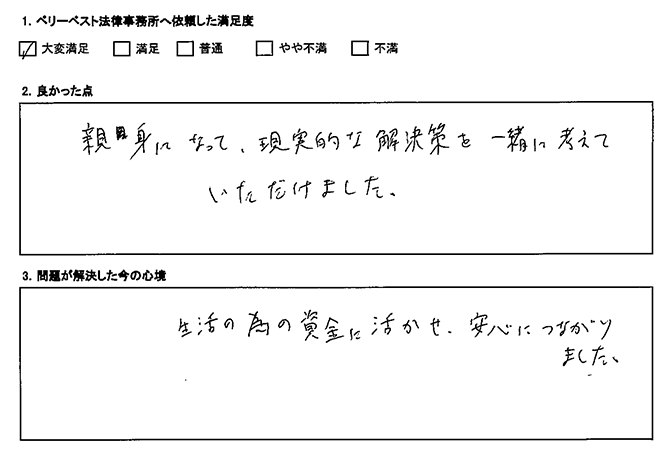 1. ベリーベスト法律事務所へ依頼した満足度
☑ 大変満足 □ 満足 □ 普通 □ やや不満 □ 不満
2. 良かった点
親身になって、現実的な解決策を一緒に考えて
いただけました。
3. 問題が解決した今の心境
生活の為の資金に活かせ、安心につながり
ました。